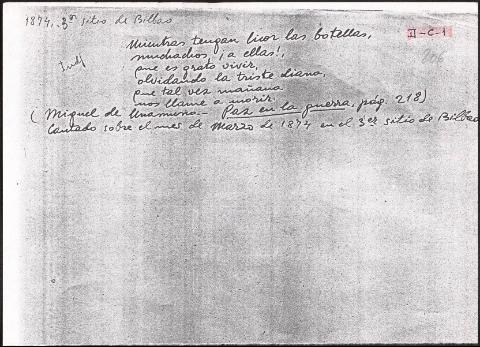 1874, 3er sitio de Bilbao
II-C-1
Mientras tengan licor las botellas,
muchachos, ¡a ellas!,
que es grato vivir,
olvidando la triste diana,
que tal vez mañana
nos llame a morir.
(Miguel de Unamuno.- Paz en la guerra, pág. 218)
Cantado sobre el mes de Marzo de 1874 en el 3er sitio de Bilbao